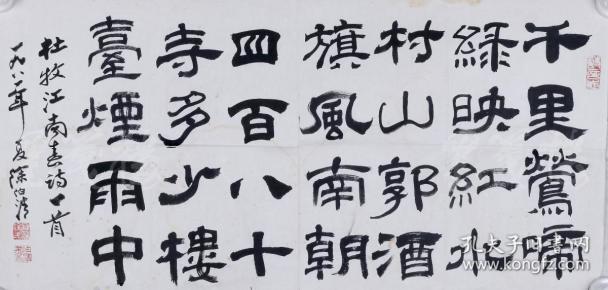 千里鶯啼
緑映紅水
村山郭酒
旗風南朝
四百八十
寺多少樓
臺煙雨中
杜牧江南春诗一首
一九八年夏徐伯清
孔夫子旧书网
www.kongfz.com